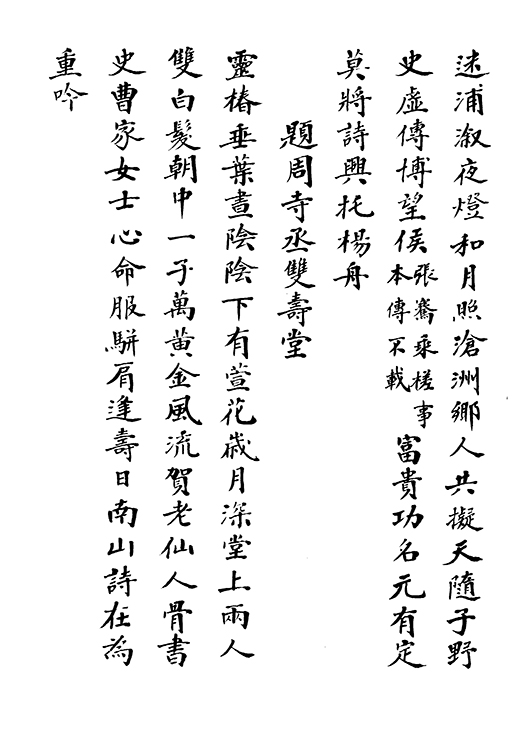 迷浦溆夜燈和月照滄洲鄉人共擬天隨子野
史虛傳博望侯張騫乘槎事本傳不載富貴功名元有定
莫將詩興托楊舟
題周寺丞雙壽堂
靈椿垂葉晝陰陰下有萱花歲月深堂上兩人
雙白髮朝中一子萬黃金風流賀老仙人骨書
史曹家女士心命服駢肩逢壽日南山詩在為
重吟